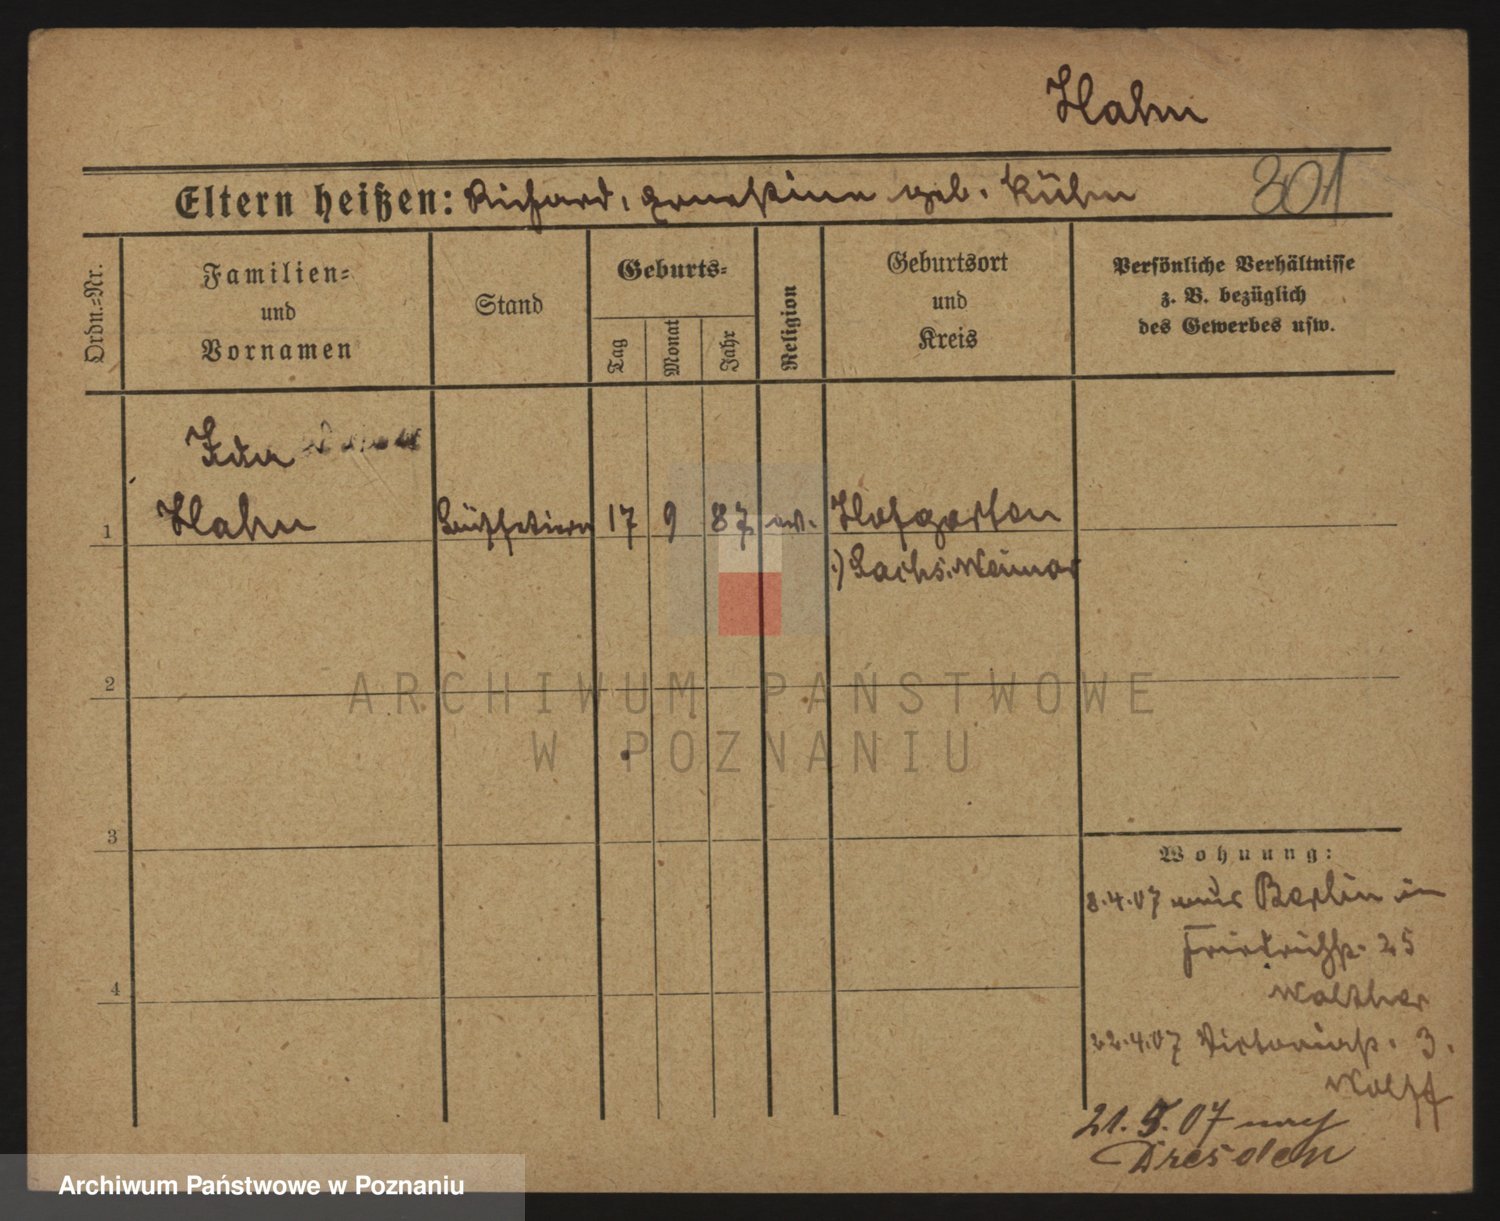 Hahn
Eltern heißen: Richard, Ernestine geb. Kühn
301
Ordn.=Nr.
Familien=
und
Vornamen
Stand
Geburts=
Tag
Monat
Jahr
Religion
Geburtsort
und
Kreis
Persönliche Verhältnisse
z. B. bezüglich
des Gewerbes usw.
Ida
1 Hahn Büffetiere 17 9 87 ev. Hofgarten
Sachs. Weimar
2
3
4
Wohnung:
8.4.07 aus Berlin in
Friedrichst. 25
Walther
22.4.07 Victoriast. 3.
Wolff
21. 5. 07 nach
Dresden
ARCHIWUM PAŃSTWOWE
W POZNANIU
Archiwum Państwowe w Poznaniu